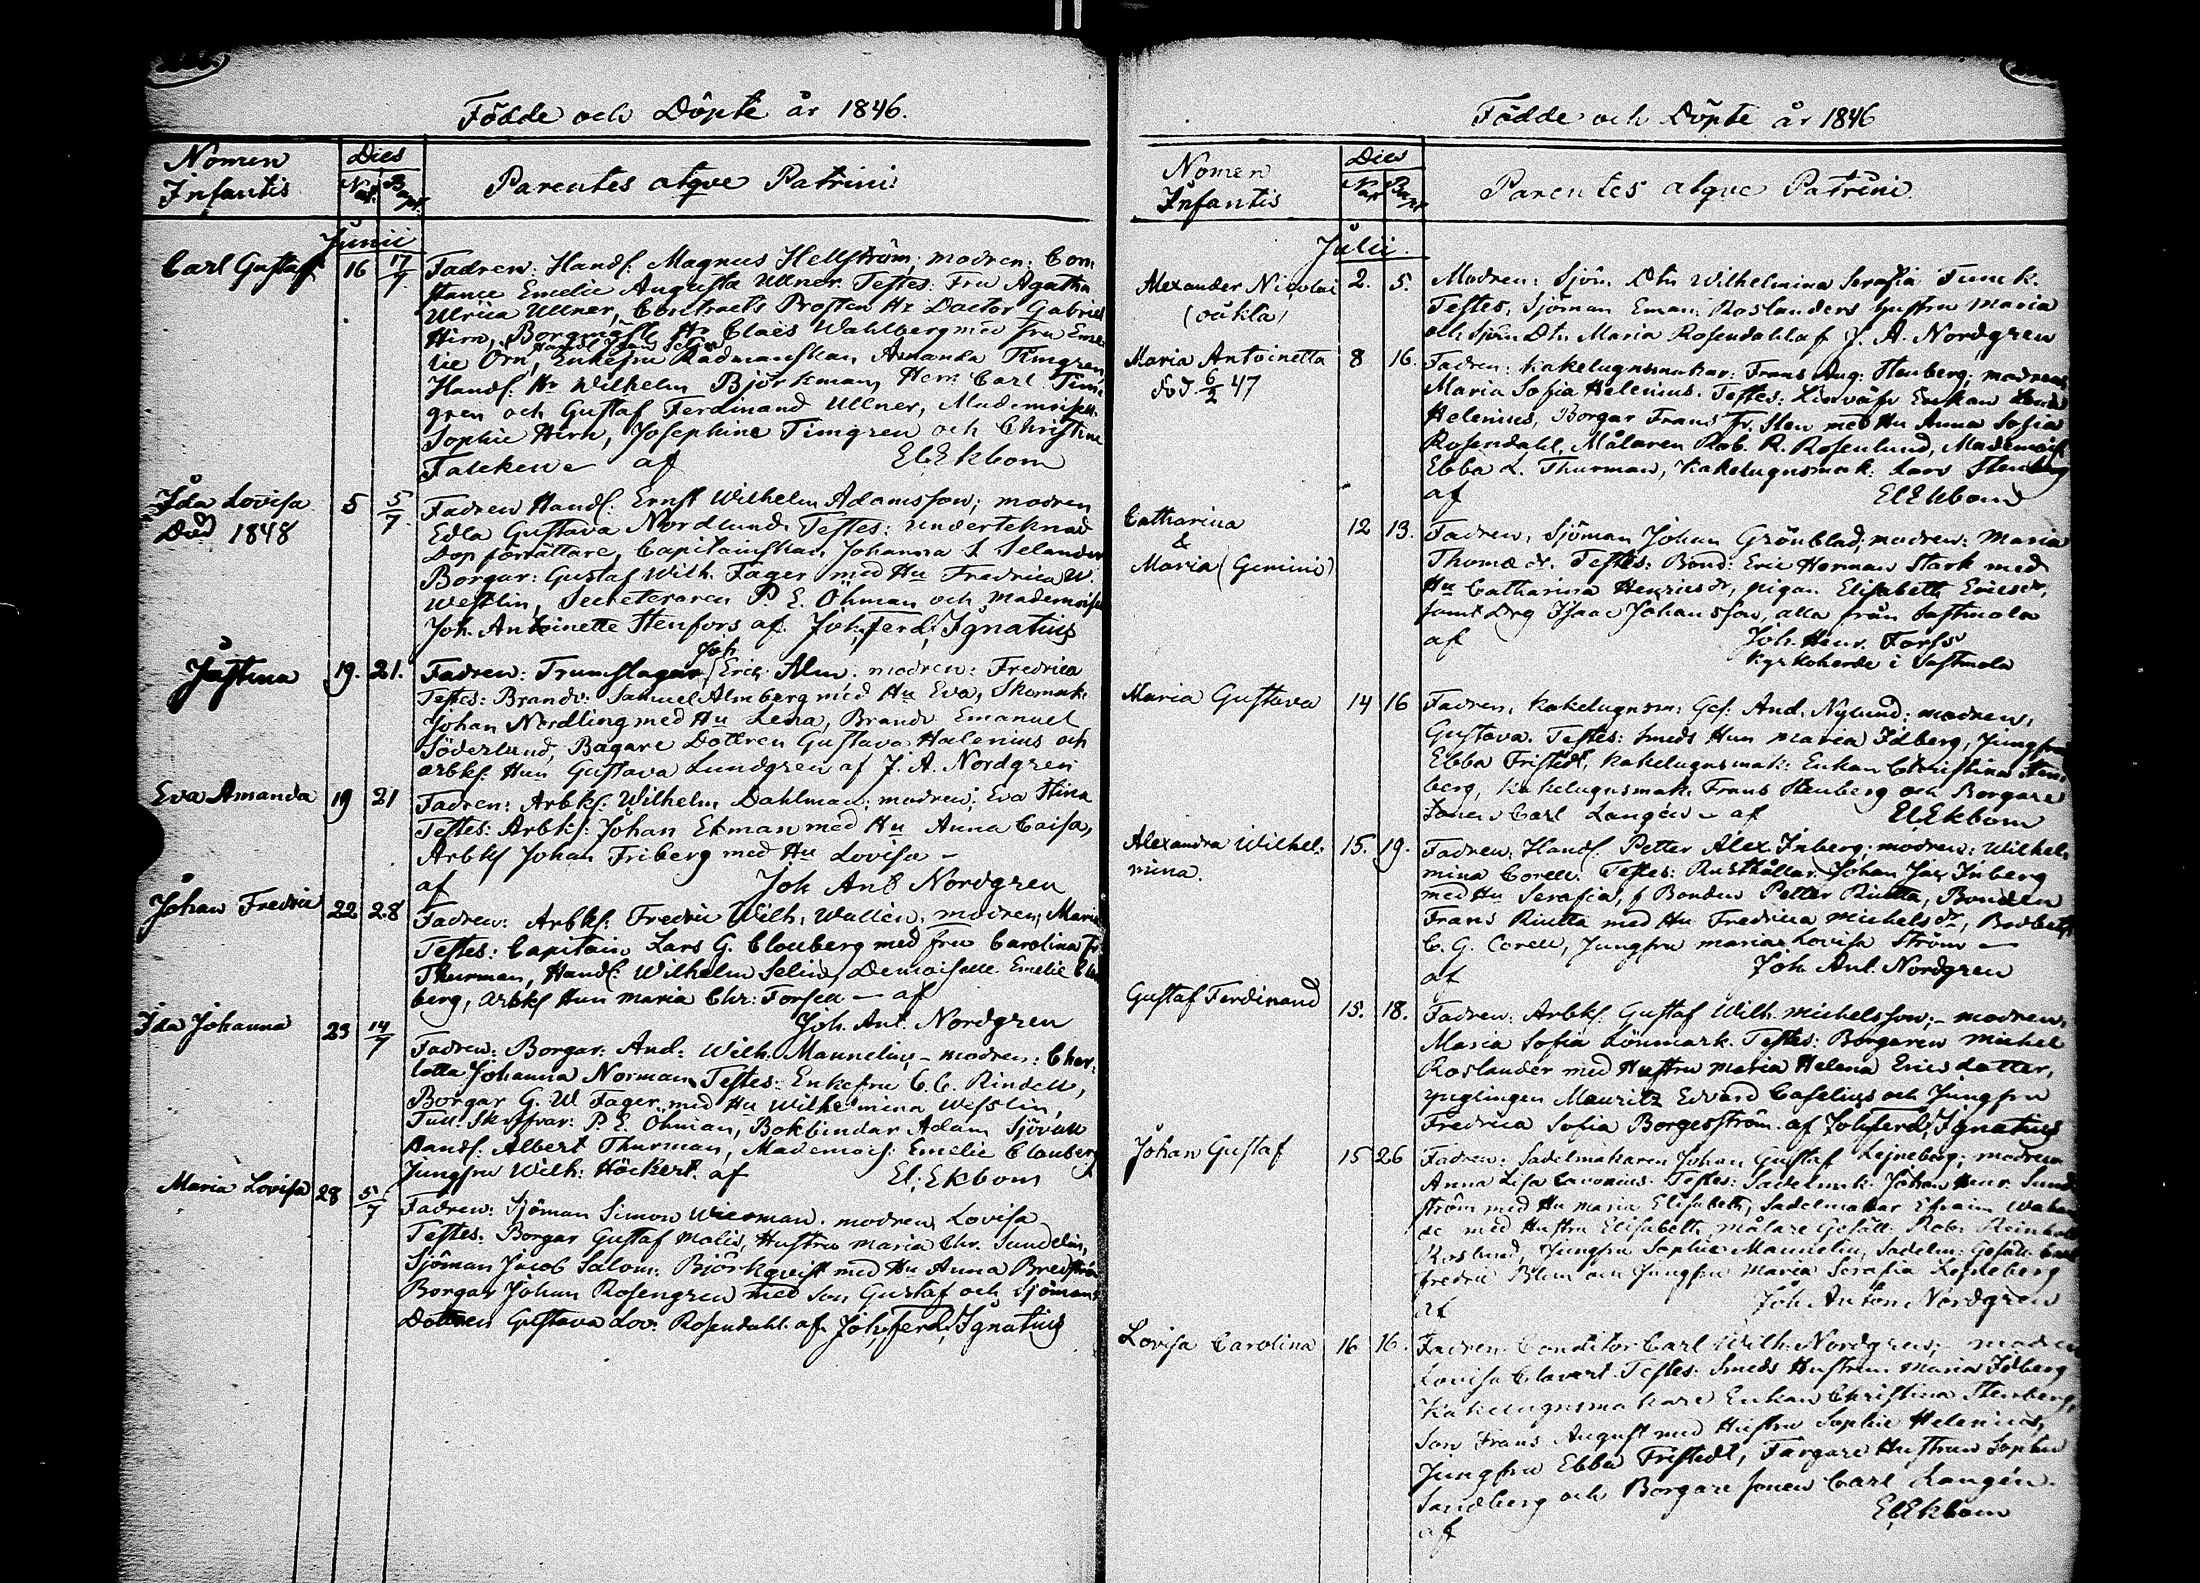 Födde och Döpte år 1846.
Nomen Infantis
Dies
Nat. Bapt.
Parentes atque Patrini
Junii
Carl Gustaf 16 17/7 Fadren: Handl: Magnus Hellström; modren: Con-
stance Emelie Augusta Ullner. Testes: Fru Agatha
Ulrica Ullner, Contracts Prosten Hr Doctor Gabriel
Hirn, Borgmäst. Hr Claës Wahlberg med fru Eme-
lie Örn, Enkefru Rådmanskan Amanda Timgren
Handl: Hr Wilhelm Björkman, Herr Carl Tim-
gren och Gustaf Ferdinand Ullner, Mademoisell.
Sophie Hirn, Josephine Timgren och Christine
Falcken af El Ekbom
Ida Lovisa 5 5/7 Fadren Handl: Ernst Wilhelm Adamsson; modren
Död 1848 Edla Gustava Nordlund. Testes: undertecknad
Dop förrättare, Capitainskan Johanna S. Selander
Borgar: Gustaf Wilh. Fager med Hu Fredrica W.
Westlin, Secreteraren P. E. Öhman och Mademoisel
Joh. Antoinette Stenfors af Joh. Ferd. Ignatius
Justina 19. 21. Fadren: Trumslagar Joh Eric Alm. modren: Fredrica
Testes: Brandv: Samuel Almberg med Hu Eva, Skomak.
Johan Nordling med Hu Lena, Brandv Emanuel
Söderlund, Bagare Dottren Gustava Halenius och
arbks. Hun Gustava Lundgren af J. A. Nordgren
Eva Amanda 19 21 Fadren: Arbks: Wilhelm Dahlman; modren; Eva Stina
Testes: Arbks: Johan Ekman med Hu Anna Caisa,
Arbks Johan Friberg med Hu Lovisa –
af Joh Ant Nordgren
Johan Fredric 22 28 Fadren: Arbks: Fredric Wilh: Wallén; modren; Maria
Testes: Capitain Lars G. Clouberg med fru Carolina Fr.
Thurman, Handl: Wilhelm Selin, Demoiselle Emelie Clou
berg, arbks Hun Maria Chr: Forsea – af
Joh. Ant. Nordgren
Ida Johanna 23 14/7 Fadren: Borgar: And: Wilh. Mannelin, – modren: Char-
lotta Johanna Norman. Testes: Enkefru C. C. Rindell,
Borgar G. W Fager med Hu Wilhelmina Westlin,
Tull Skrifvar: P. E. Öhman, Bokbindar Adam Sjövall
Handl: Albert Thurman, Mademois: Emelie Clouberg
Jungfru Wilh: Höckert. af El: Ekbom
Maria Lovisa 28 5/7 Fadren: Sjöman Simon Wiesman. modren Lovisa
Testes: Borgar Gustaf Malis, Hustru Maria Chr. Sundelin,
Sjöman Jacob Salom: Björkqvist med Hu Anna Bredström
Borgar Johan Rosengren med Son Gustaf och Sjömans
Dottren Gustava Lov: Rosendahl. af Joh, Ferd, Ignatius
Födde och Döpte år 1846
Nomen Infantis
Dies
Nat Bapt
Parentes atque Patrini.
Julii.
Alexander Nicolai 2. 5. Modren: Sjöm. Dtr Wilhelmina Serafia Funck.
(oäkta) Testes: Sjöman Eman: Roslanders hustru Maria
och Sjöm Dtr. Maria Rosendahl af J. A. Nordgren
Maria Antoinetta 8 16. Fadren: Kakelugnsmakar: Frans Aug: Stenberg; modren
död 6/2 47 Maria Sofia Helenius. Testes: Linväfv Enkan
Helenius, Borgar Frans Fr. Sten med Hu Anna Sofia
Rosendahl, Målaren Rob. R. Rosenlund, Mademois
Ebba L. Thurman, Kakelugnsmak: Lars Stenberg
af El Ekbom
Catharina 12 13. Fadren, Sjöman Johan Grönblad; modren: Maria
& Thomæ dr. Testes: Bond: Eric Herman Stark med
Maria (Gemini) Hu Catharina Henricsdr, pigan Elisabeth Ericsdr,
samt Drg Isaac Johansson, alla från Sastmola
af Joh. Henr. Forss
Kyrkoherde i Sastmola
Maria Gustava 14 16 Fadren: Kakelugnsm: Ges. And. Nylund; modren,
Gustava. Testes: Smeds Hun Maria Idberg, Jungfru
Ebba Fristedt, Kakelugnsmak: Enkan Christina Sten-
berg, Kakelugnsmak. Frans Stenberg och Borgare
Sonen Carl Langén – af El Ekbom
Alexandra Wilhel- 15. 19. Fadren: Handl. Petter Alex Inberg; modren: Wilhel-
mina. mina Corell. Testes: Rusthållar Johan Jac Inberg
med Hu Serafia, f Bonden Petter Riutta, Bonden
Frans Riutta med Hu Fredrica Michelsdr, Bodbetj
C. G. Corell, Jungfru Maria Lovisa Ström –
af Joh Ant. Nordgren
Gustaf Ferdinand 15. 18. Fadren: Arbks. Gustaf Wilh. Michelsson; – modren,
Maria Sofia Lönmark. Testes: Borgaren Michel
Roslander med Hustru Maria Helena Erics dotter,
ynglingen Mauritz Edvard Caselius och Jungfru
Fredrica Sofia Borgesström. af Joh, Ferd, Ignatius
Johan Gustaf 15 26 Fadren: Sadelmakaren Johan Gustaf Lejneberg; modren
Anna Lisa Cavonius. Testes: Sadelmak: Johan Henr. Sund
ström med Hu Maria Elisabeth, Sadelmakar Efraim
med Hustru Elisabeth, målare Gesäll: Rob: Reinhold
Roslund, Jungfru Sophie Mannelin, Sadelm: Gesäll Carl
Fredric Blom och Jungfru Maria Serafia Lejneberg
af Joh Anton Nordgren
Lovisa Carolina 16 16. Fadren Conditor Carl Wilh: Nordgren; – modren
Lovisa Clavert. Testes: Smeds Hustrun Maria Idberg
Kakelugnsmakare Enkan Christina Stenberg,
Son Frans August med Hustru Sophie Helenius,
Jungfru Ebba Fristedt, Färgare Hustrun Sophie
Sandberg och Borgare sonen Carl Langén.
af El Ekbom